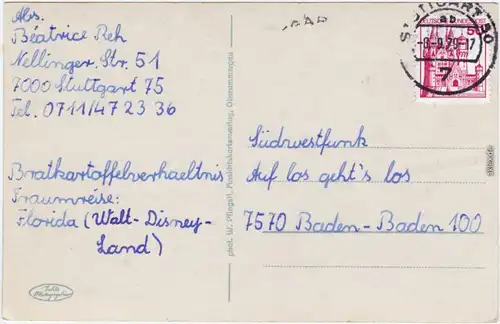 Abs.
Béatrice Reh
Nellinger Str. 51
7000 Stuttgart 75
Tel. 0711/47 23 36
Bratkartoffelverhaeltnis
Traumreise:
Florida (Walt-Disney-
Land)
Echte
Photographie
phot. W. Pfingstl, Ansichtskartenverlag, Oberammergau
STUTTGART 30
ab
-8.-9.79-17
7
DEUTSCHE BUNDESPOST
50
Südwestfunk
Auf los geht's los
7570 Baden-Baden 100